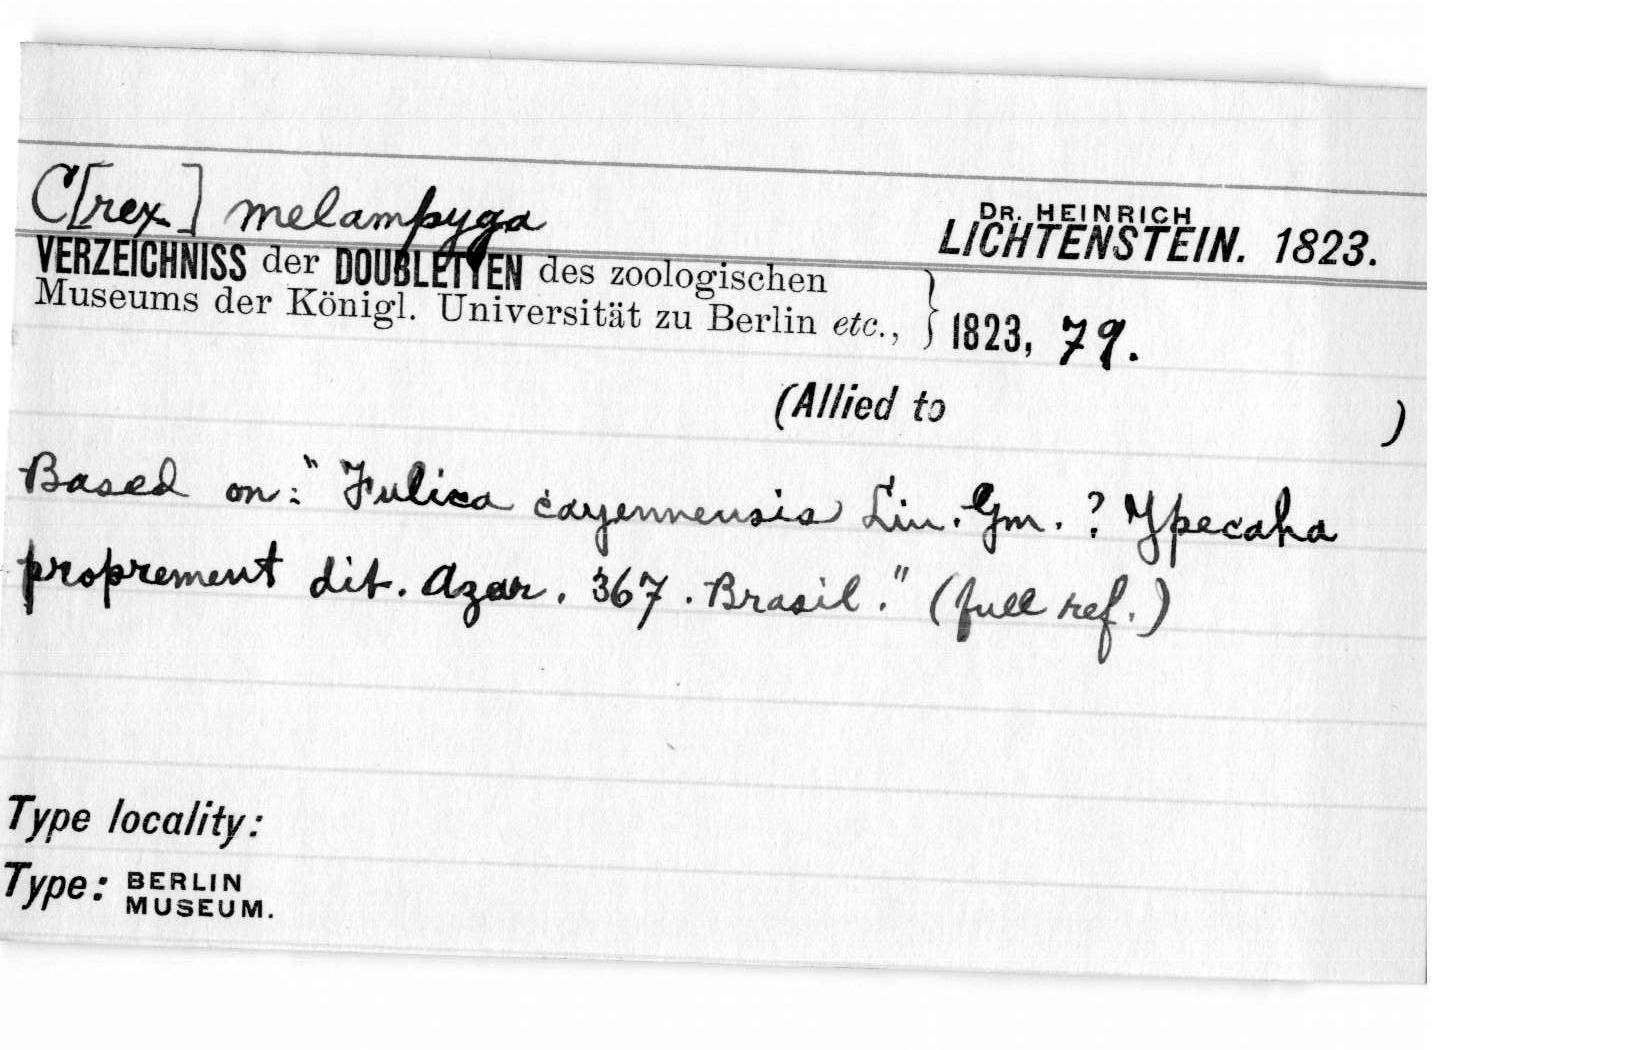 C[rex] melampyga
DR. HEINRICH
LICHTENSTEIN. 1823.
VERZEICHNISS der DOUBLETTEN des zoologischen
Museums der Königl. Universität zu Berlin etc., } 1823, 79.
(Allied to )
Based on: "Fulica cayennensis Lin. Gm. ? Ypecaha
proprement dit. Azar. 367. Brasil." (full ref.)
Type locality:
Type: BERLIN
MUSEUM.